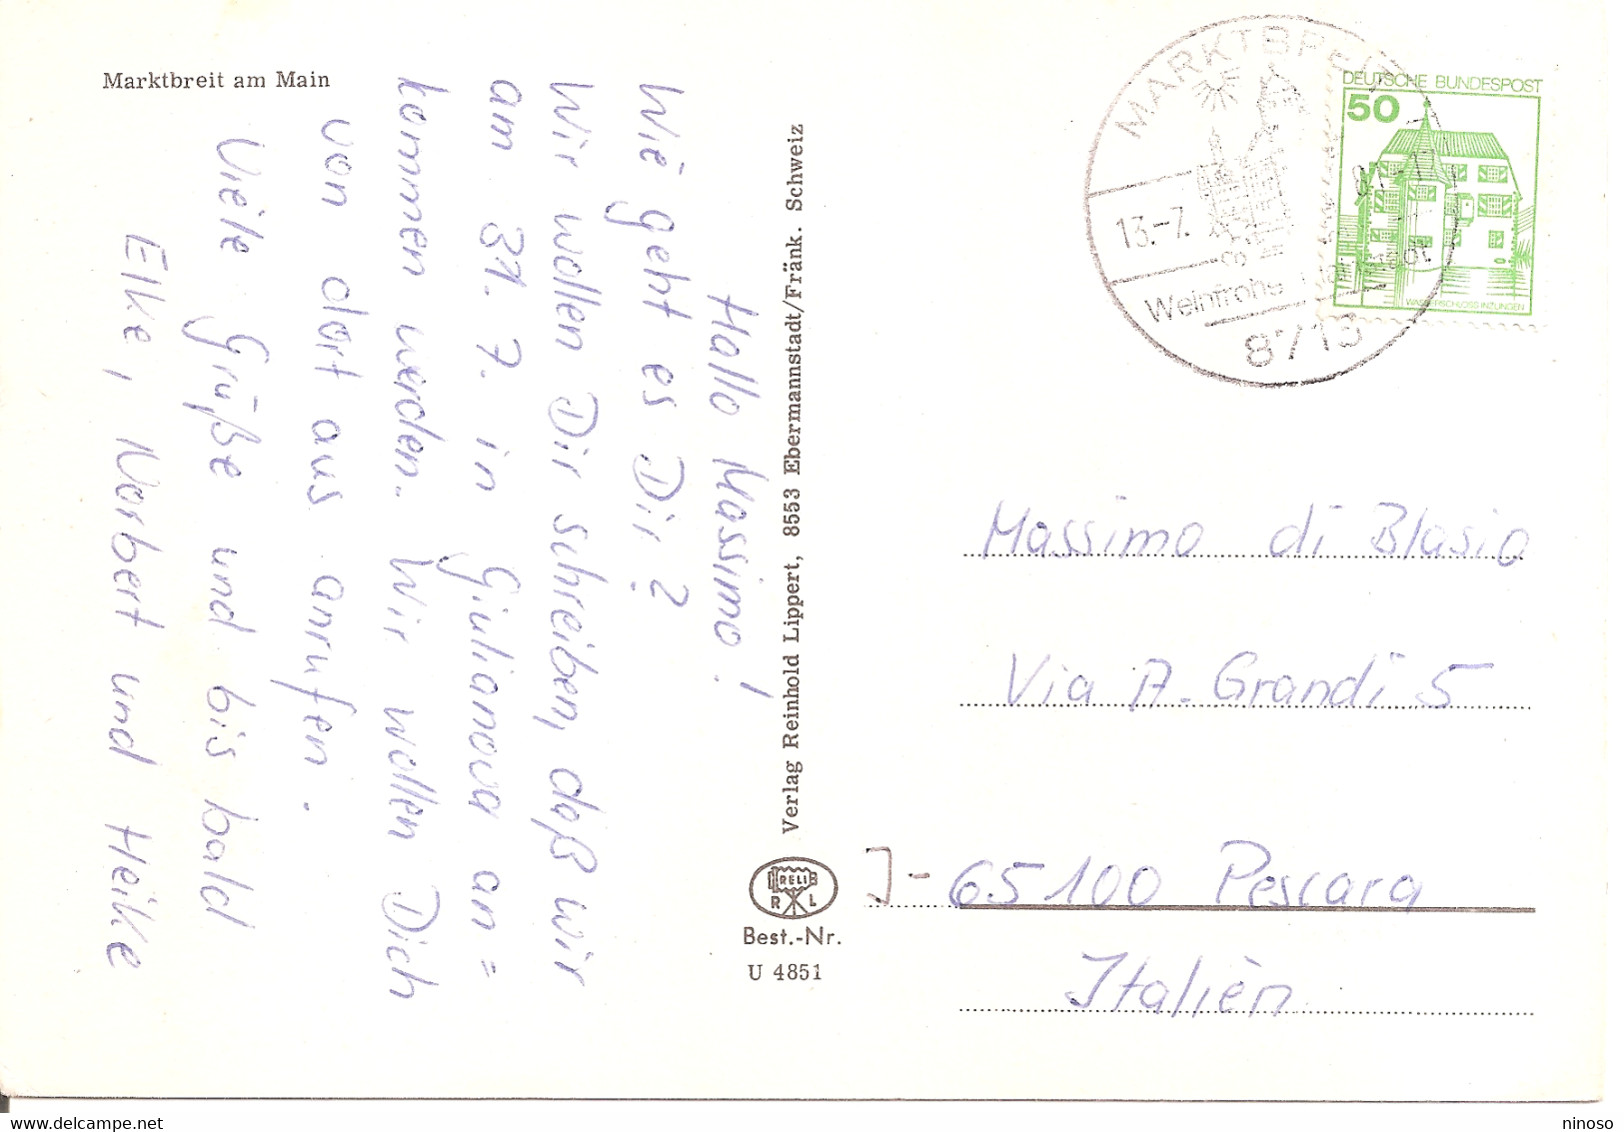 Marktbreit am Main
Hallo Massimo!
Wie geht es Dir?
Wir wollen Dir schreiben, daß wir
am 31. 7. in Giulianova an=
kommen werden. Wir wollen Dich
von dort aus anrufen.
Viele Grüße und bis bald
Elke, Norbert und Heike
Verlag Reinhold Lippert, 8553 Ebermannstadt/Fränk. Schweiz
RELI
R L
Best.-Nr.
U 4851
MARKTBREIT
13.-7.
Weinfrohe
8713
DEUTSCHE BUNDESPOST
50
WASSERSCHLOSS INZLINGEN
Massimo di Blasio
Via A. Grandi 5
I- 65100 Pescara
Italien
delcampe.net
ninoso